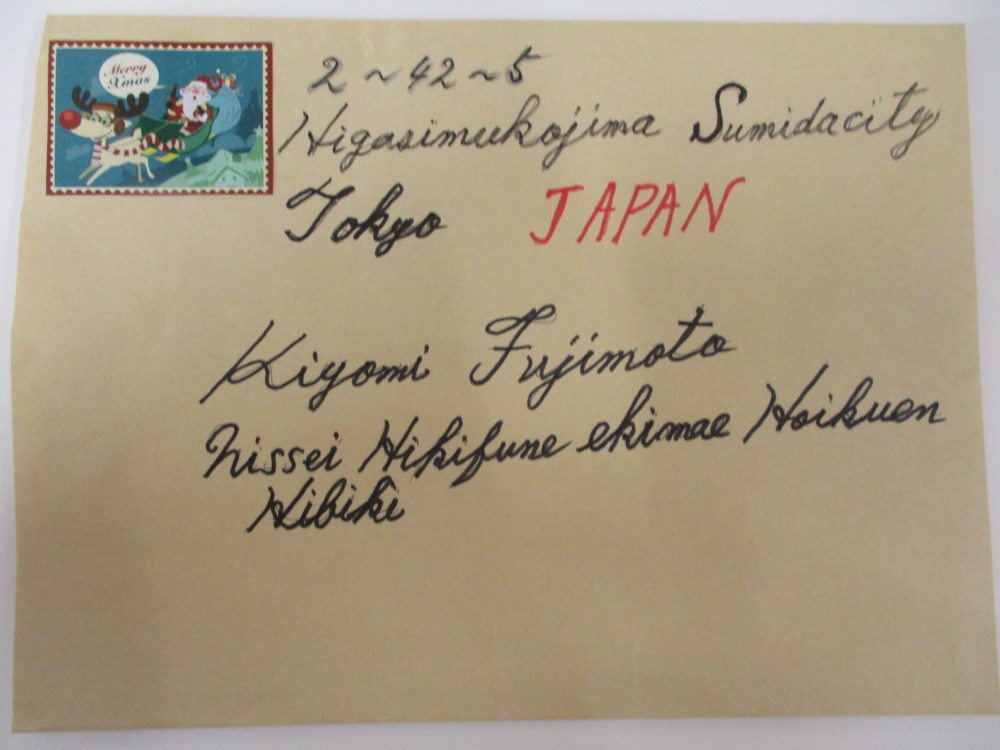 Merry
Xmas
2~42~5
Higasimukojima Sumidacity
Tokyo JAPAN
Kiyomi Fujimoto
Nissei Hikifune ekimae Hoikuen
Hibiki